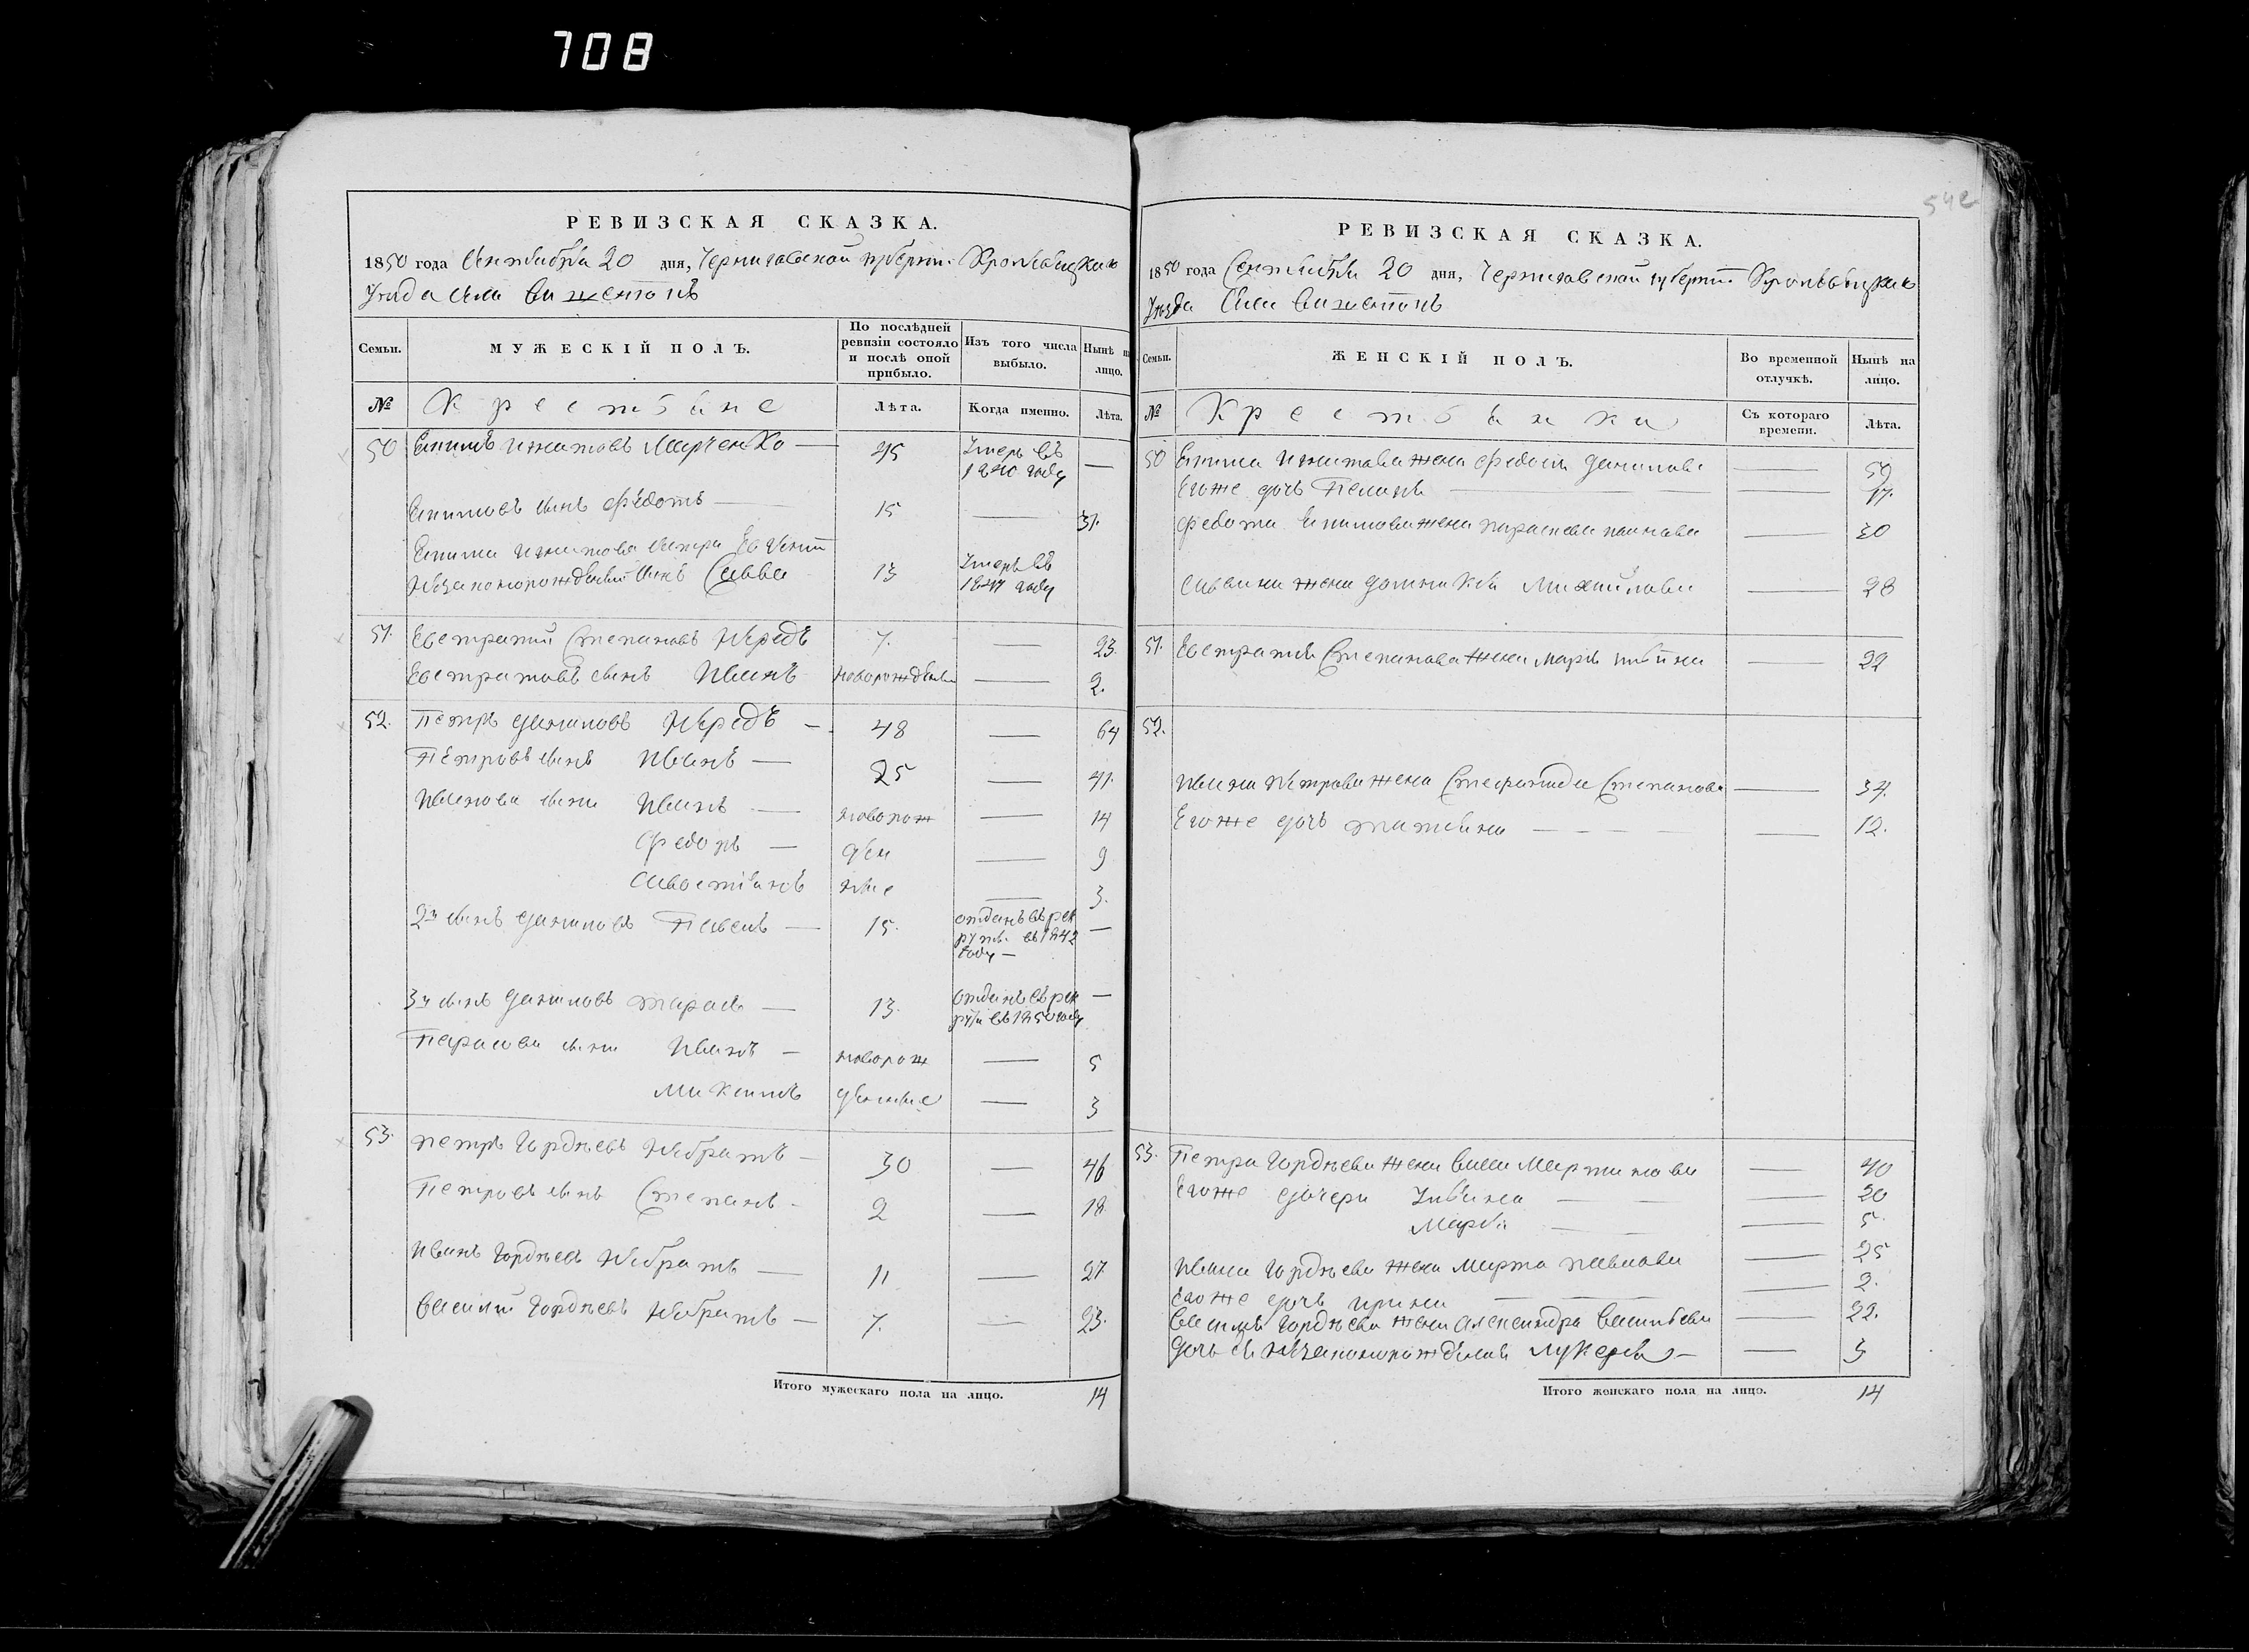 708
542
РЕВИЗСКАЯ СКАЗКА.
1850 года Сентября 20 дня, Черниговской губерніи Кролевецкаго
Уезда Села
Семьи.
МУЖЕСКІЙ ПОЛЪ.
По послѣдней ревизіи состояло и послѣ оной прибыло.
Изъ того числа выбыло.
Нынѣ на лицо.
№
Крестьяне
Лѣта.
Когда именно.
Лѣта.
50 Екимъ Игнатовъ Марченко 45 Умеръ въ 1840 году —
Екимовъ сынъ Федотъ — 15 — 31.
Екима Игнатова сестры
незаконорожденный сынъ Савва 13 Умеръ въ 1847 году
51. Евстратій Степановъ Нередъ 7. — 23.
Евстратовъ сынъ Иванъ новорожденный — 2.
52. Петръ Даниловъ Нередъ — 48 — 64
Петровъ сынъ Иванъ — 25 — 41.
Ивановы сыны Иванъ — новорож — 14
Федоръ — ден — 9
Савостіанъ ные — 3.
2й сынъ Даниловъ Павелъ — 15. отданъ въ рекруты въ 1842 году — —
3й сынъ Даниловъ Тарасъ — 13. отданъ въ рекруты въ 1850 году —
Тарасовы сыны Иванъ — новорож — 5
Максимъ денные — 3
53. Петръ Гордѣевъ Небратъ — 30 — 46
Петровъ сынъ Степанъ — 2 — 18.
Иванъ Гордѣевъ Небратъ — 11 — 27
Василій Гордѣевъ Небратъ — 7. — 23.
Итого мужескаго пола на лицо. 14
РЕВИЗСКАЯ СКАЗКА.
1850 года Сентября 20 дня, Черниговской губерніи Кролевецкаго
Уѣзда Села
Семьи.
ЖЕНСКІЙ ПОЛЪ.
Во временной отлучкѣ.
Нынѣ на лицо.
№
Крестьянки
Съ котораго времени.
Лѣта.
50 Екима Игнатова жена Федосья Данилова — 59
Его же дочь — 17.
Федота Екимова жена Параскева Павлова — 30
Саввина жена Домникія Михайлова — 28
51. Евстратія Степанова жена Марья — 22
52.
Ивана Петрова жена Степанида Степанова — 34.
Его же дочь Татьяна — 12.
53. Петра Гордѣева жена Васса Мартинова — 40
Его же дочери Ульяна — 20
Марья — 5.
Ивана Гордѣева жена Марфа Павлова — 25
Его же дочь Ирина — 2.
Василія Гордѣева жена Александра Васильева — 22.
Дочь ея незаконорожденная Лукерья — 3
Итого женскаго пола на лицо. 14